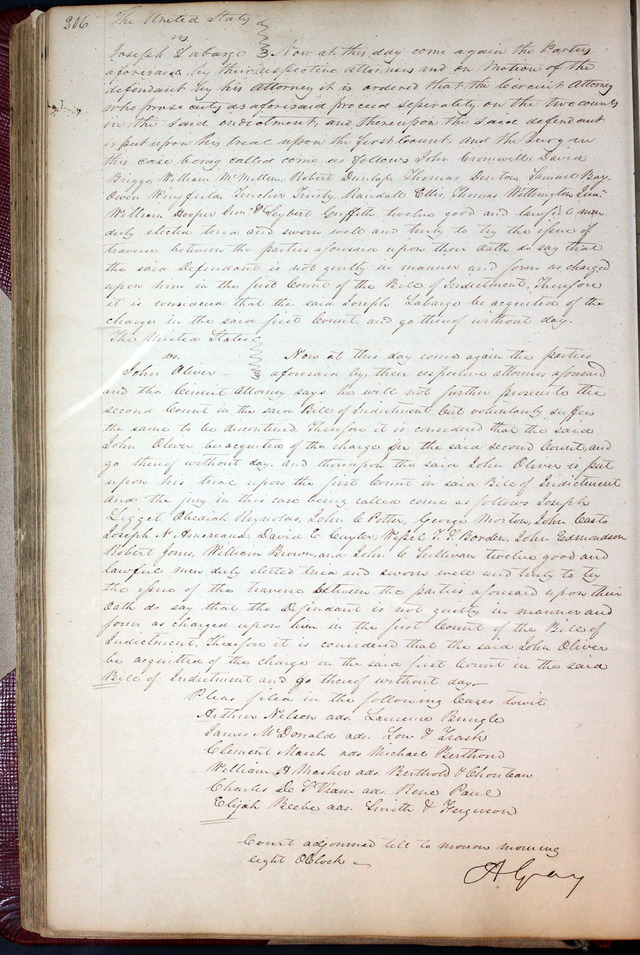 206
The United States
vs
Joseph Labarge } Now at this day come again the Parties
aforesaid by their respective attornies and on motion of the
defendant by his Attorney it is ordered that the Circuit Attorney
who prosecutes as aforesaid proceed seperately on the two counts
in the said indictment, and thereupon the said defendant
is put upon his trial upon the first Count, and the Jury in
this case being called come as follows John Cromwell David
Briggs, William McMillen, Robert Dunlop, Thomas Denton, Samuel Bay,
Owen Wingfield, Fincher Trusty, Randall Ellis, Thomas Withington Junr
William Hooper Seybert Griffith twelve good and lawful men
duly elected tried and sworn well and truly to try the issue of
traverse between the parties aforesaid upon their Oath do say that
the said Defendant is not guilty in manner and form as charged
upon him in the first Count of the Bill of Indictment. Therefore
it is considered that the said Joseph Labarge be acquitted of the
charge in the said first Count, and go thereof without day.
The United States
vs.
Now at this day come again the parties
John Oliver aforesaid by their respective attornies aforesaid
and the Circuit Attorney says he will not further prosecute the
second Count in the said Bill of Indictment but voluntarily suffers
the same to be discontinued. Therefore it is considered that the said
John Oliver be acquitted of the charge in the said second Count, and
go thereof without day. and thereupon the said John Oliver is put
upon his trial upon the first Count in said Bill of Indictment
and the jury in this case being called come as follows Joseph
Ligget Obediah Reynolds, John C Potter, George Morton, John Casto
Joseph N. David E Cuyler, Wessel Borden, John Edmondson
Robert Jones, William Brown, and John C Sullivan twelve good and
lawful men duly elected tried and sworn well and truly to try
the issue of the traverse between the parties aforesaid upon their
Oath do say that the Defendant is not guilty in manner and
form as charged upon him in the first Count of the Bill of
Indictment. Therefore it is considered that the said John Oliver
be acquitted of the charge in the said first Count in the said
Bill of Indictment and go thereof without day—
Pleas filed in the following Cases towit
Arthur Nelson ads. Laurence Ringle
James McDonald ads. Lon & Trash
Clement March ads Michael Berthoud
William H Mosher ads Berthold & Chouteau
Charles De St Vrain ads. Rene Paul
Elijah Beebe ads. Smith & Ferguson
Court adjourned till to morrow morning
eight OClock—
A Gray